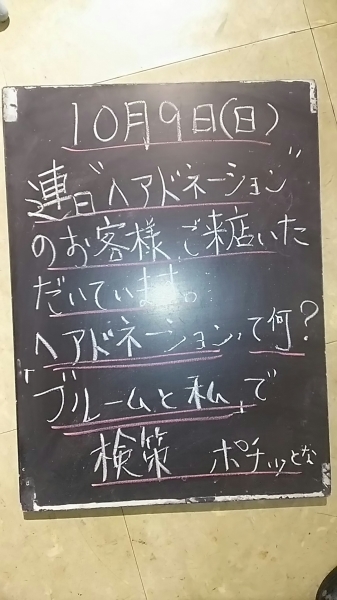 10月9日(日)
連日"ヘアドネーション"
のお客様、ご来店いた
だいています。
ヘアドネーション、て何?
「ブルームと私」で
検策 ポチッとな